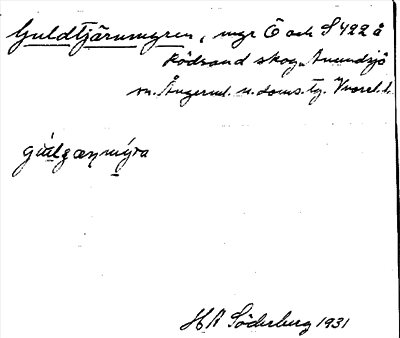 Guldtjärnmyren, myr Ö och S 422 å
Rödsand skog. Anundsjö
sn. Ångerml. n. doms. tg. Vnorrl. l.
gɯ́alʒæɳmýra
HA Söderberg 1931